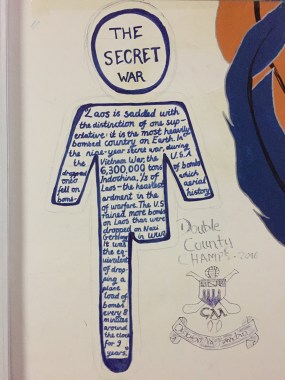 THE
SECRET
WAR
"Laos is saddled with
the distinction of one sup-
erlative: it is the most heavily
bombed country on Earth. In
the nine-year secret war, during
the Vietnam War, the U.S.A
dropped 6,300,000 tons of bombs
onto Indochina, 1/3 of which
fell on Laos - the heaviest aerial
bomb- ardment in the history
of warfare. The U.S
rained more bombs
on Laos than were
dropped on Nazi
Germany in WW2
It was
the eq-
uivalent
of drop-
ping a
plane
load of
bombs
every 8
minutes
around
the clock
for 9
years."
Double
County
CHAMPS - 2016